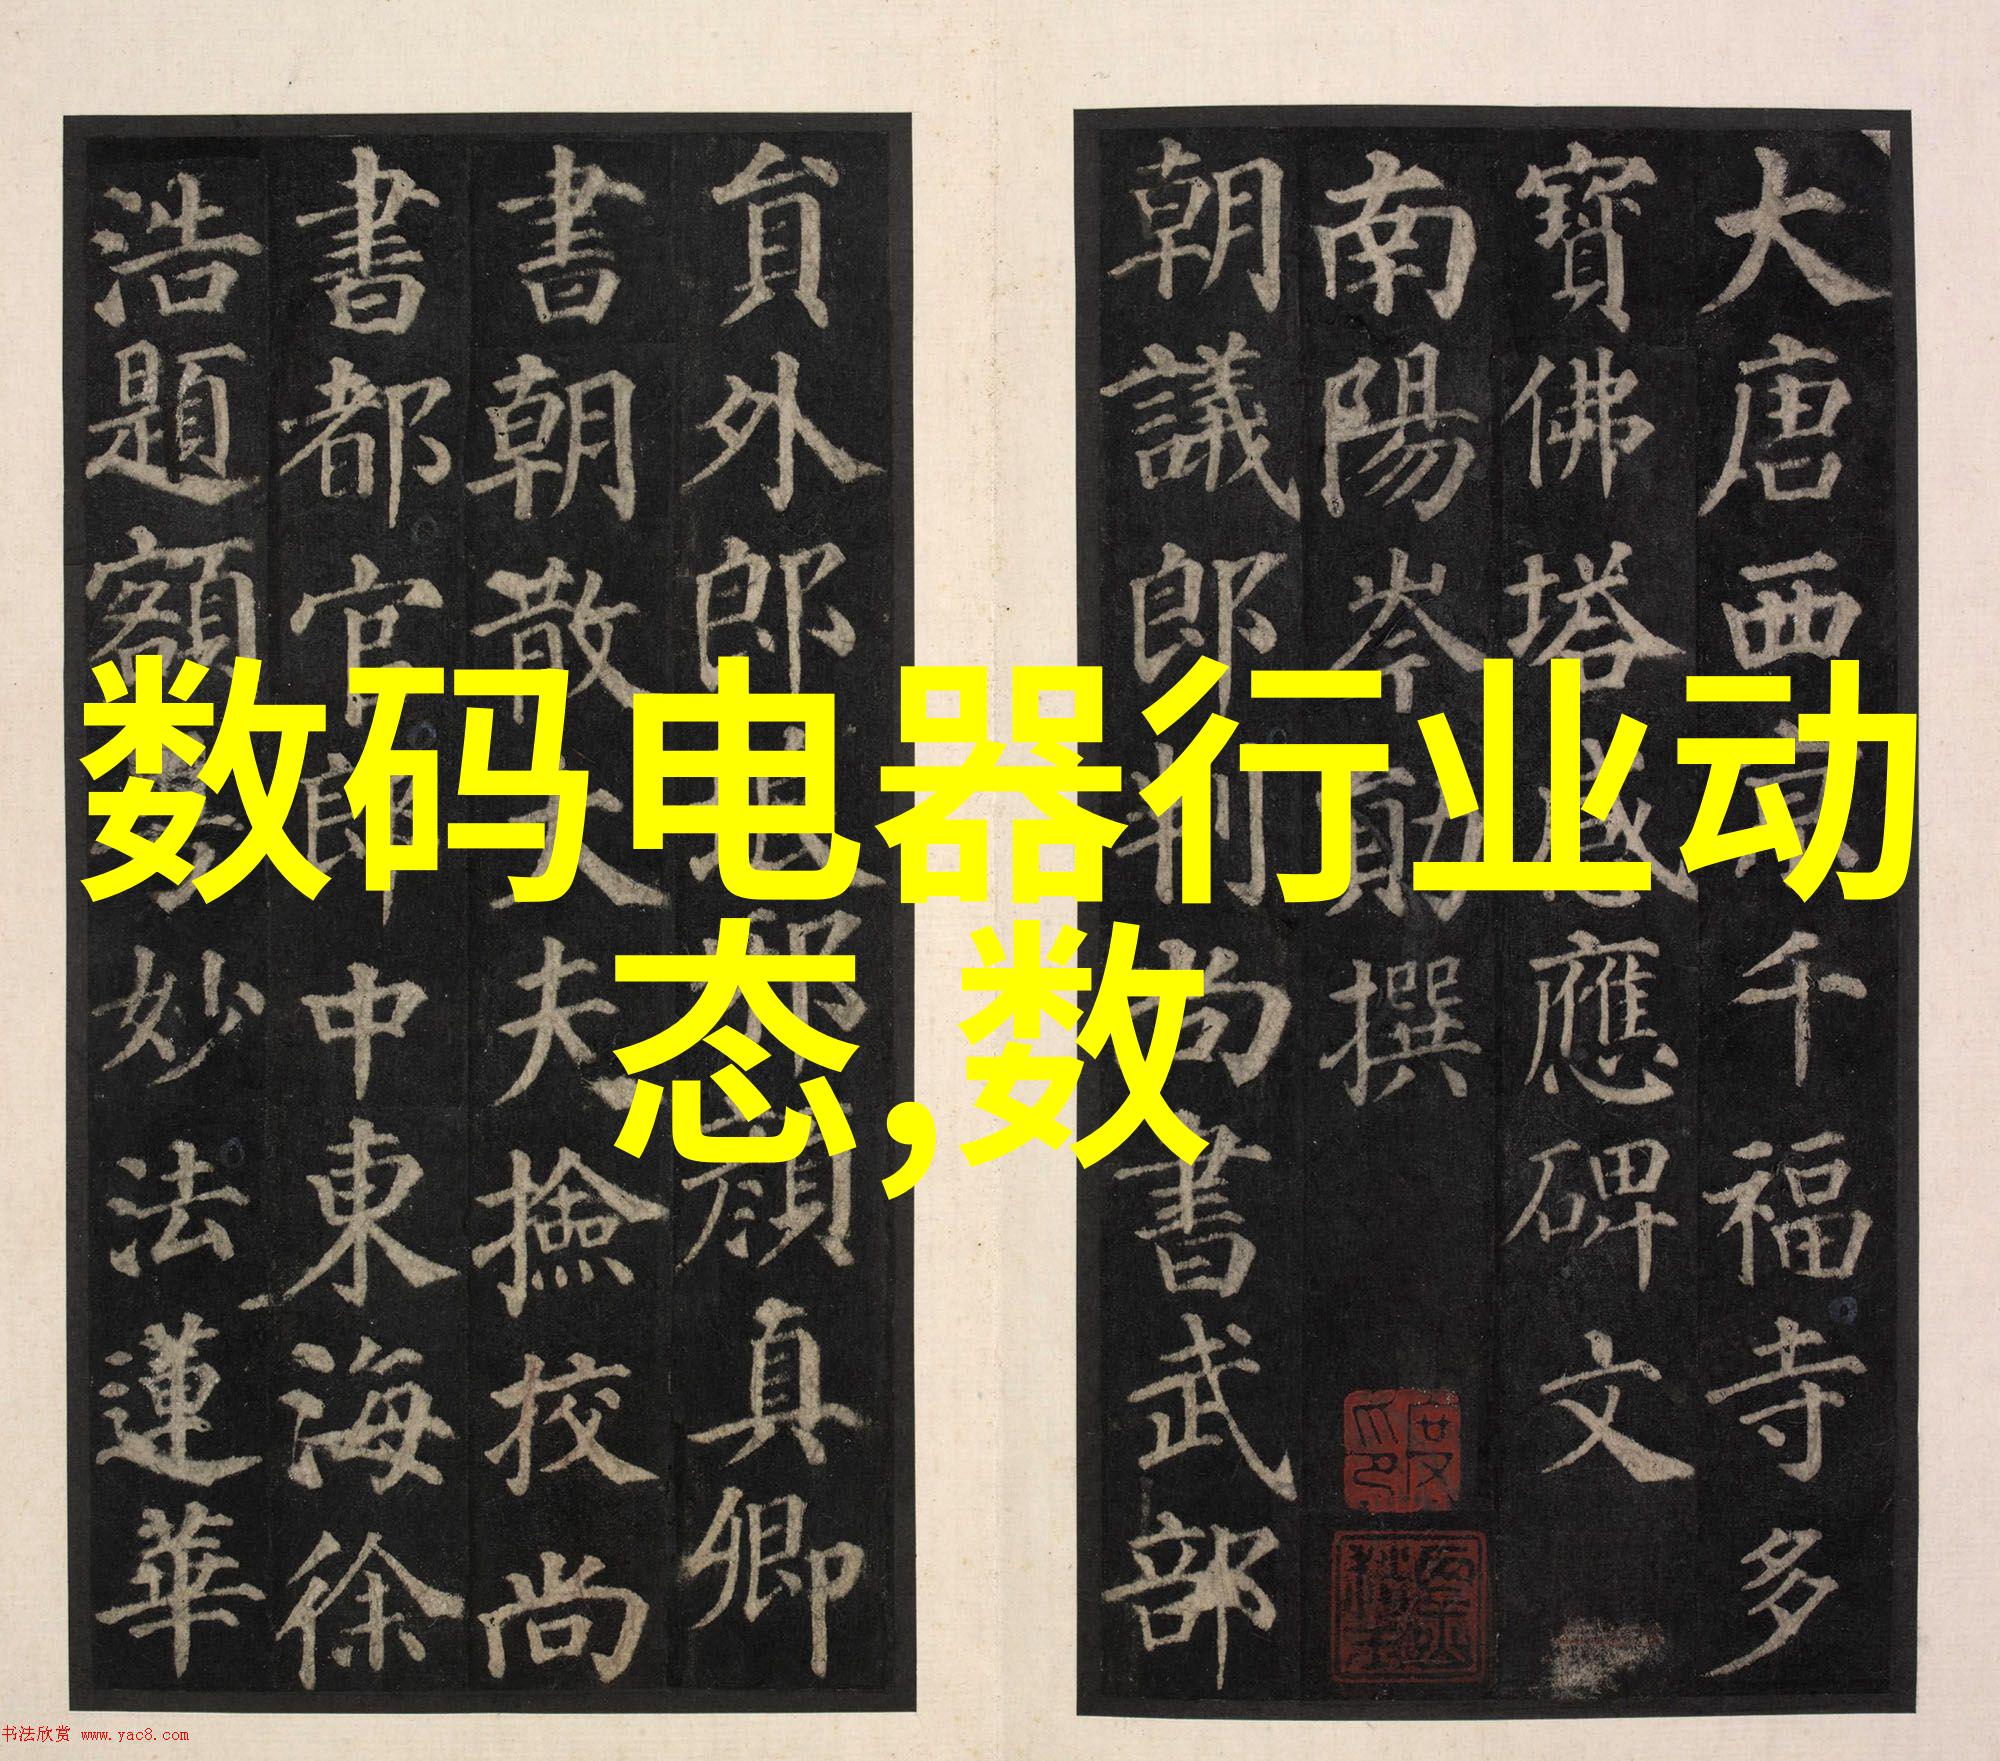 数码电器行业动
态,数
大唐西京千福寺多
寶佛塔感應碑文
南陽岑勛撰
朝議郎判尚書武部
貟外郎顏真卿
書朝散大夫撿挍尚
書都官郎中東海徐
浩題額妙法蓮華
书法欣赏 www.yac8.com